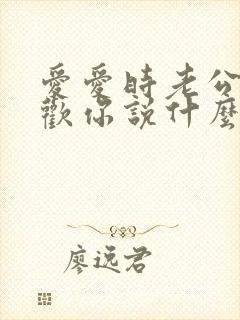 愛愛時老公
歡你說什麼
廖逸君